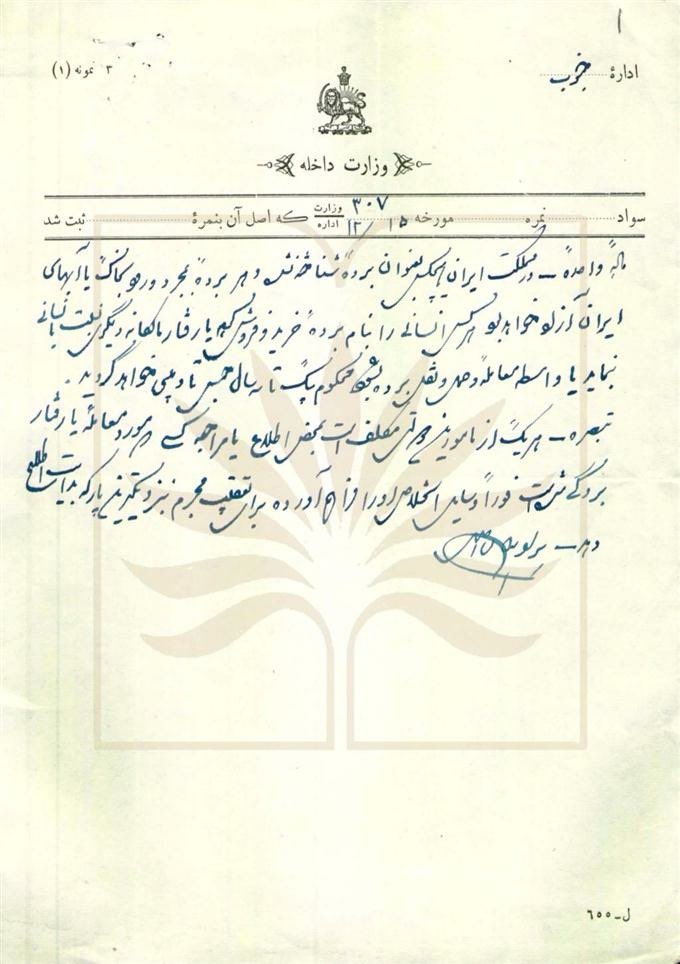 ۱
ادارهٔ جنوب
۳ نمونه (۱)
وزارت داخله
سواد نمره مورخه ۱۵ /۱۲ ۳۰۷ وزارت اداره که اصل آن بنمرهٔ ثبت شد
مادهٔ واحده – در مملکت ایران هیچکس بعنوان برده شناخته نشده و هر برده بمجرد ورود بخاک یا آبهای
ایران آزاد خواهد بود هر کس انسانی را بنام برده خرید و فروش کرده یا رفتار مالکانه دیگری نسبت بانسانی
بنماید یا واسطه معامله و حمل و نقل برده بشود محکوم بیک تا سه سال حبس تأدیبی خواهد گردید.
تبصره – هر یک از مأمورین دولتی مکلف است بمحض اطلاع یا مراجعه کسی که مورد معامله یا رفتار
بردگی شده است فوراً وسایل استخلاص او را فراهم آورده برای تعقیب مجرم نیز نزدیکترین پارکه بدایت اطلاع
دهد –
ل–۶۰۰